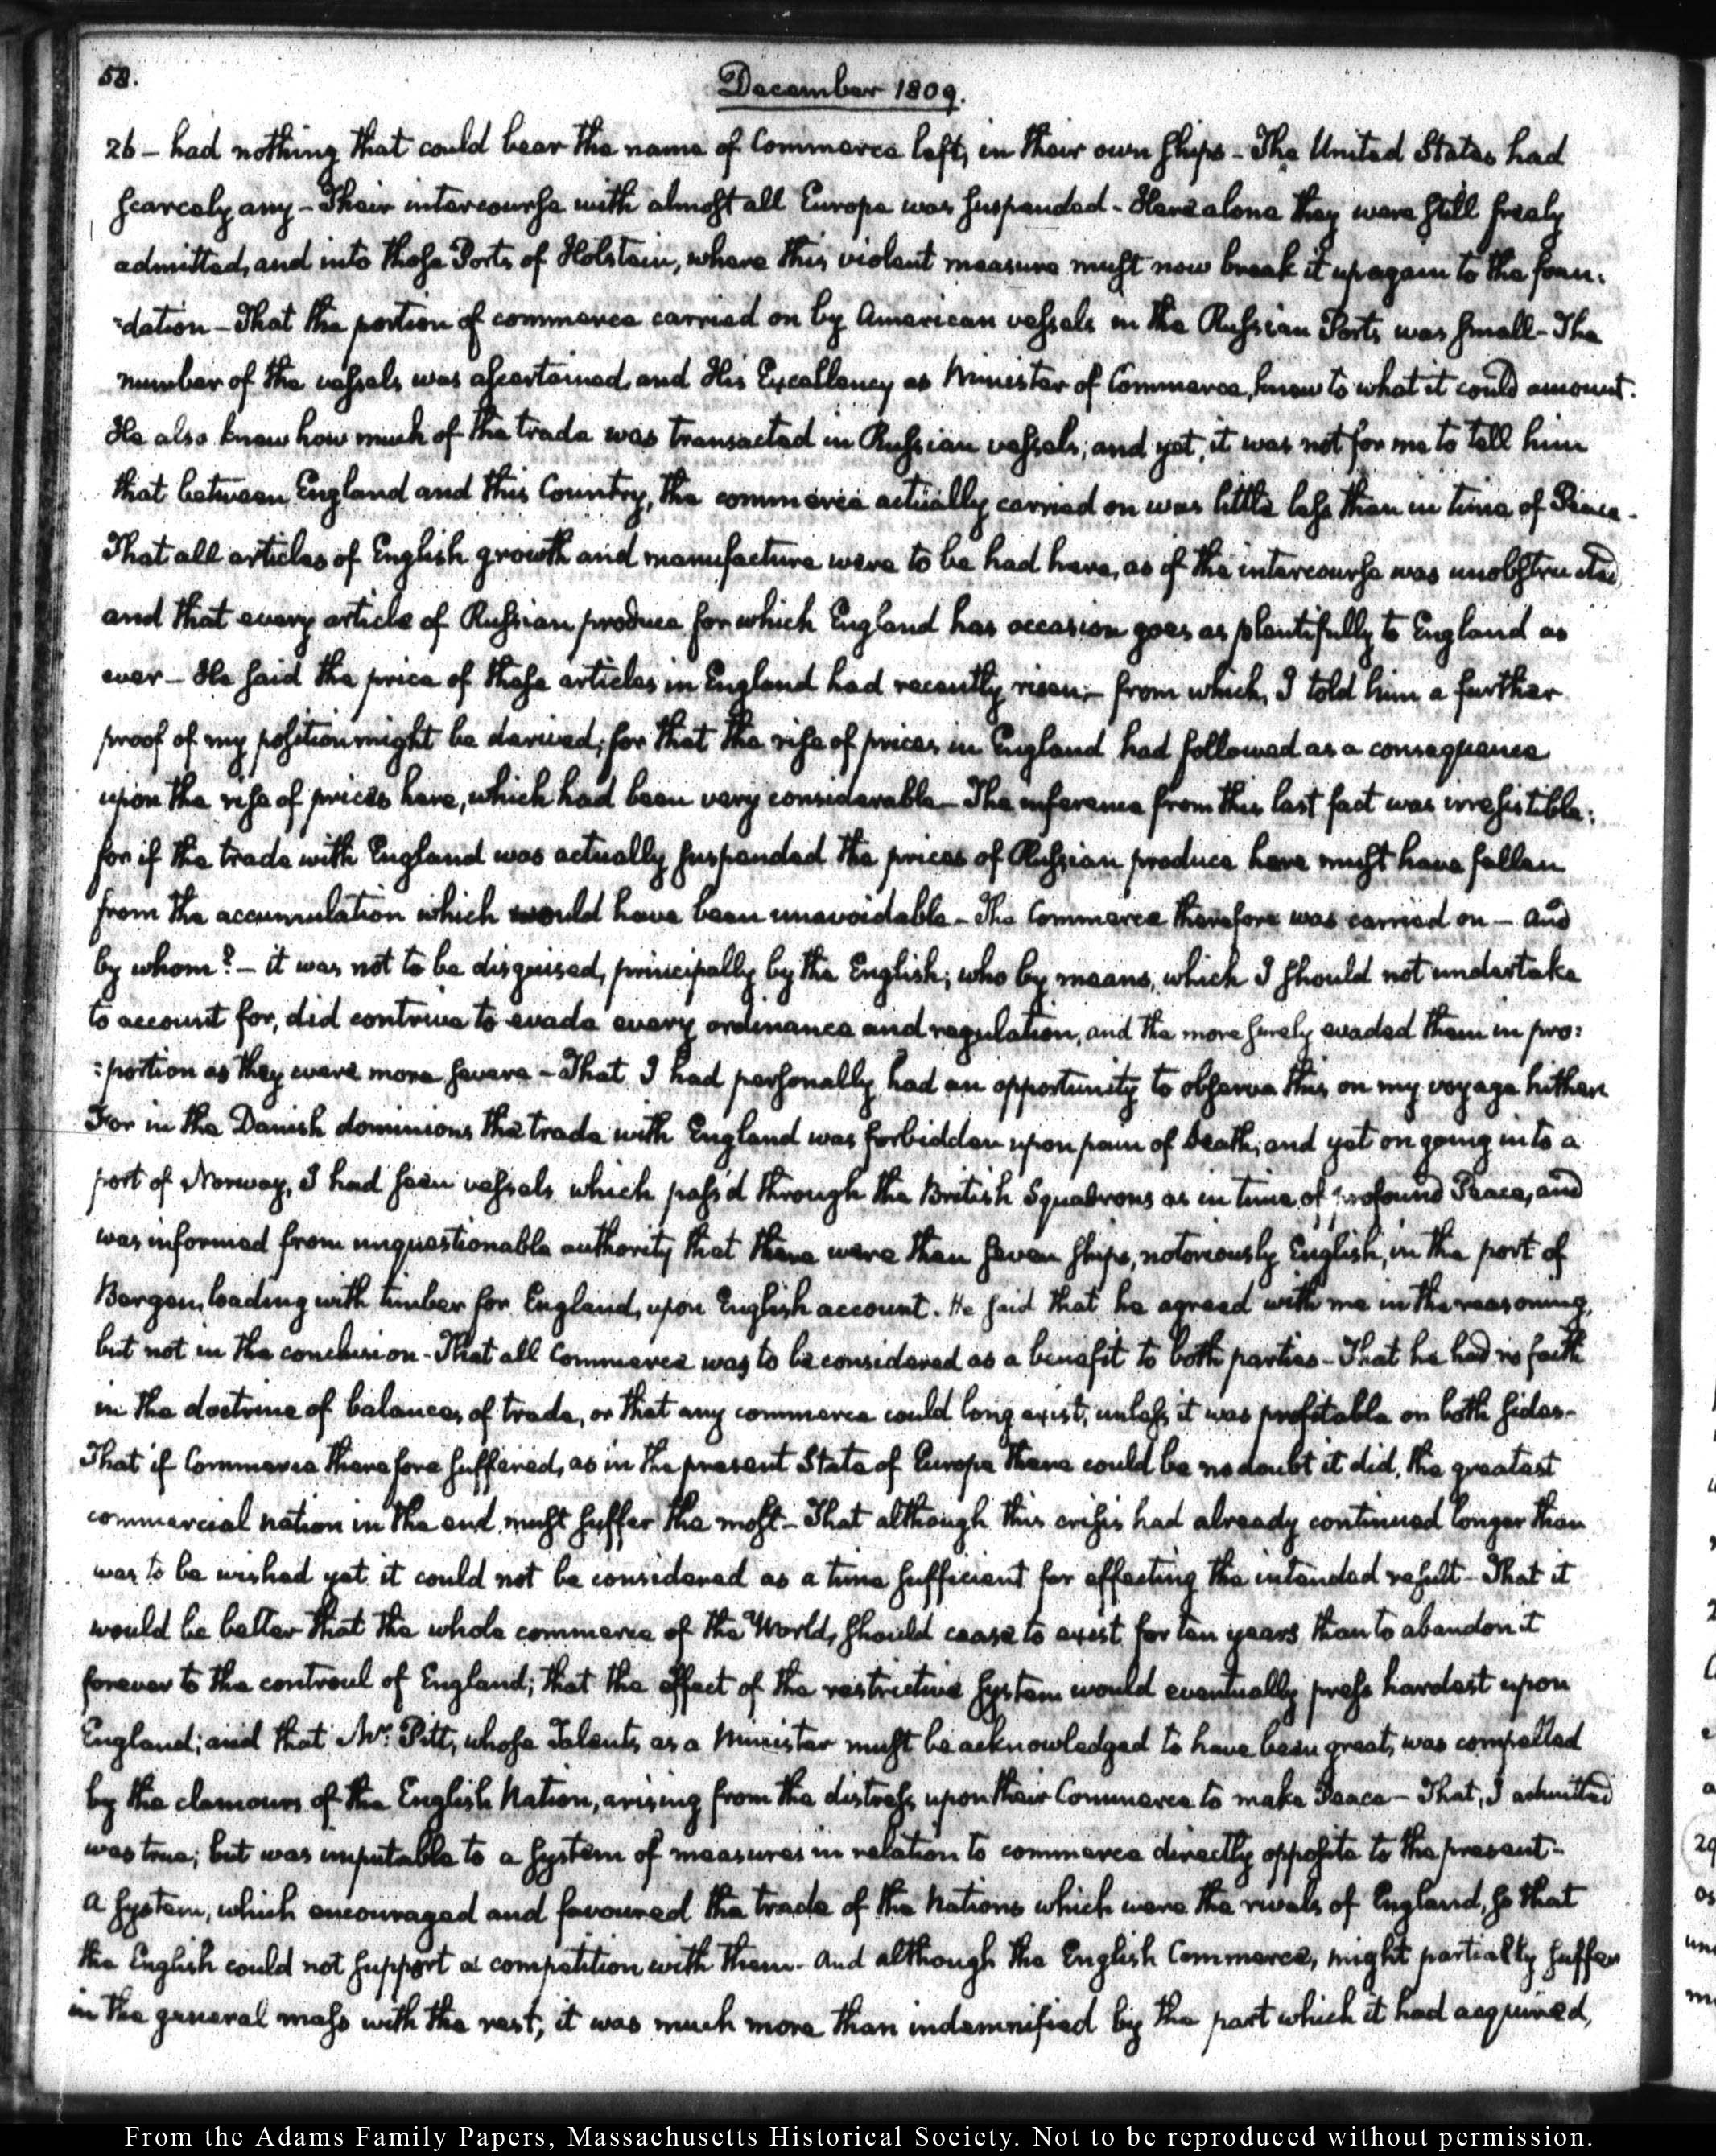 58.
December 1809.
26 — had nothing that could bear the name of Commerce left, in their own ships - The United States had
scarcely any - Their intercourse with almost all Europe was suspended - Here alone they were still freely
admitted, and into those Ports of Holstein, where this violent measure must now break it up again to the foun-
=dation — That the portion of commerce carried on by American vessels in the Russian Ports was small - The
number of the vessels was ascertained, and His Excellency as Minister of Commerce, knew to what it could amount.
He also knew how much of the trade was transacted in Russian vessels; and yet, it was not for me to tell him
that between England and this Country, the commerce actually carried on was little less than in time of Peace -
That all articles of English growth and manufacture were to be had here, as if the intercourse was unobstructed,
and that every article of Russian produce for which England has occasion goes as plentifully to England as
ever — He said the price of these articles in England had recently risen; — from which, I told him a further
proof of my position might be derived; for that the rise of prices in England had followed as a consequence
upon the rise of prices here, which had been very considerable — The inference from this last fact was irresistible:
for if the trade with England was actually suspended the prices of Russian produce here must have fallen
from the accumulation which would have been unavoidable - The Commerce therefore was carried on — and
by whom? — it was not to be disguised, principally by the English; who by means, which I should not undertake
to account for, did contrive to evade every ordinance and regulation, and the more surely evaded them in pro:
:portion as they were more severe - That I had personally had an opportunity to observe this on my voyage hither
For in the Danish dominions the trade with England was forbidden upon pain of death; and yet on going into a
port of Norway, I had seen vessels which pass'd through the British Squadrons as in time of profound Peace, and
was informed from unquestionable authority that there were then seven ships, notoriously English, in the port of
Bergen, loading with timber for England, upon English account. He said that he agreed with me in the reasoning,
but not in the conclusion - That all Commerce was to be considered as a benefit to both parties - That he had no faith
in the doctrine of balances of trade, or that any commerce could long exist, unless it was profitable on both sides -
That if Commerce therefore suffered, as in the present State of Europe there could be no doubt it did, the greatest
commercial nation in the end must suffer the most — That although this crisis had already continued longer than
was to be wished yet it could not be considered as a time sufficient for effecting the intended result - That it
would be better that the whole commerce of the World, should cease to exist for ten years than to abandon it
forever to the controul of England; that the effect of the restrictive system would eventually press hardest upon
England; and that Mr. Pitt, whose Talents as a Minister must be acknowledged to have been great, was compelled
by the clamours of the English Nation, arising from the distress upon their Commerce to make Peace — That, I admitted
was true; but was imputable to a system of measures in relation to commerce directly opposite to the present -
a system, which encouraged and favoured the trade of the Nations which were the rivals of England, so that
the English could not support a competition with them. And although the English Commerce, might partially suffer
in the general mass with the rest, it was much more than indemnified by the part which it had acquired,
From the Adams Family Papers, Massachusetts Historical Society. Not to be reproduced without permission.